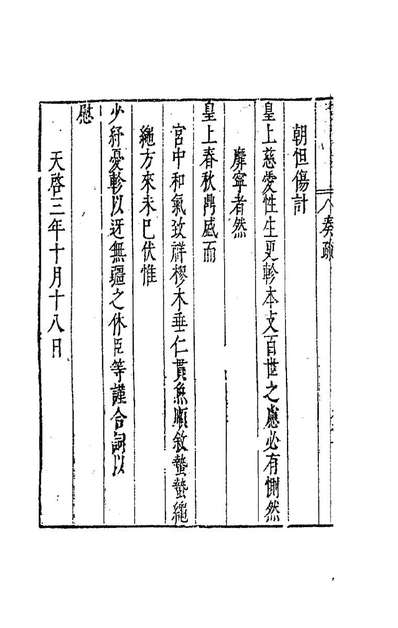 奏疏
朝怛傷計
皇上慈愛性生更軫本支百世之慮必有惻然
靡寧者然
皇上春秋鼎盛而
宮中和氣致祥樛木垂仁貫魚順敘蟄蟄繩
繩方來未已伏惟
少紓憂軫以迓無疆之休臣等謹合詞以
慰
天啓三年十月十八日